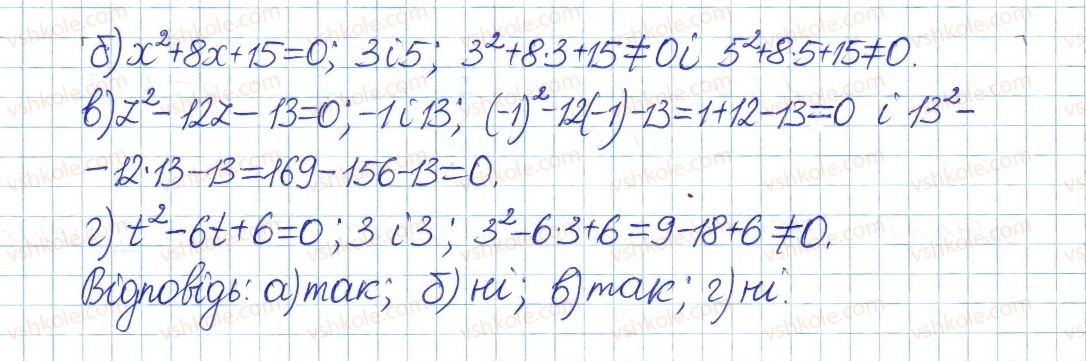 б) x²+8x+15=0; 3 і 5; 3²+8·3+15≠0 і 5²+8·5+15≠0.
в) z²-12z-13=0; -1 і 13; (-1)²-12(-1)-13=1+12-13=0 і 13²-
-12·13-13=169-156-13=0.
г) t²-6t+6=0; 3 і 3; 3²-6·3+6=9-18+6≠0.
Відповідь: а) так; б) ні; в) так; г) ні.